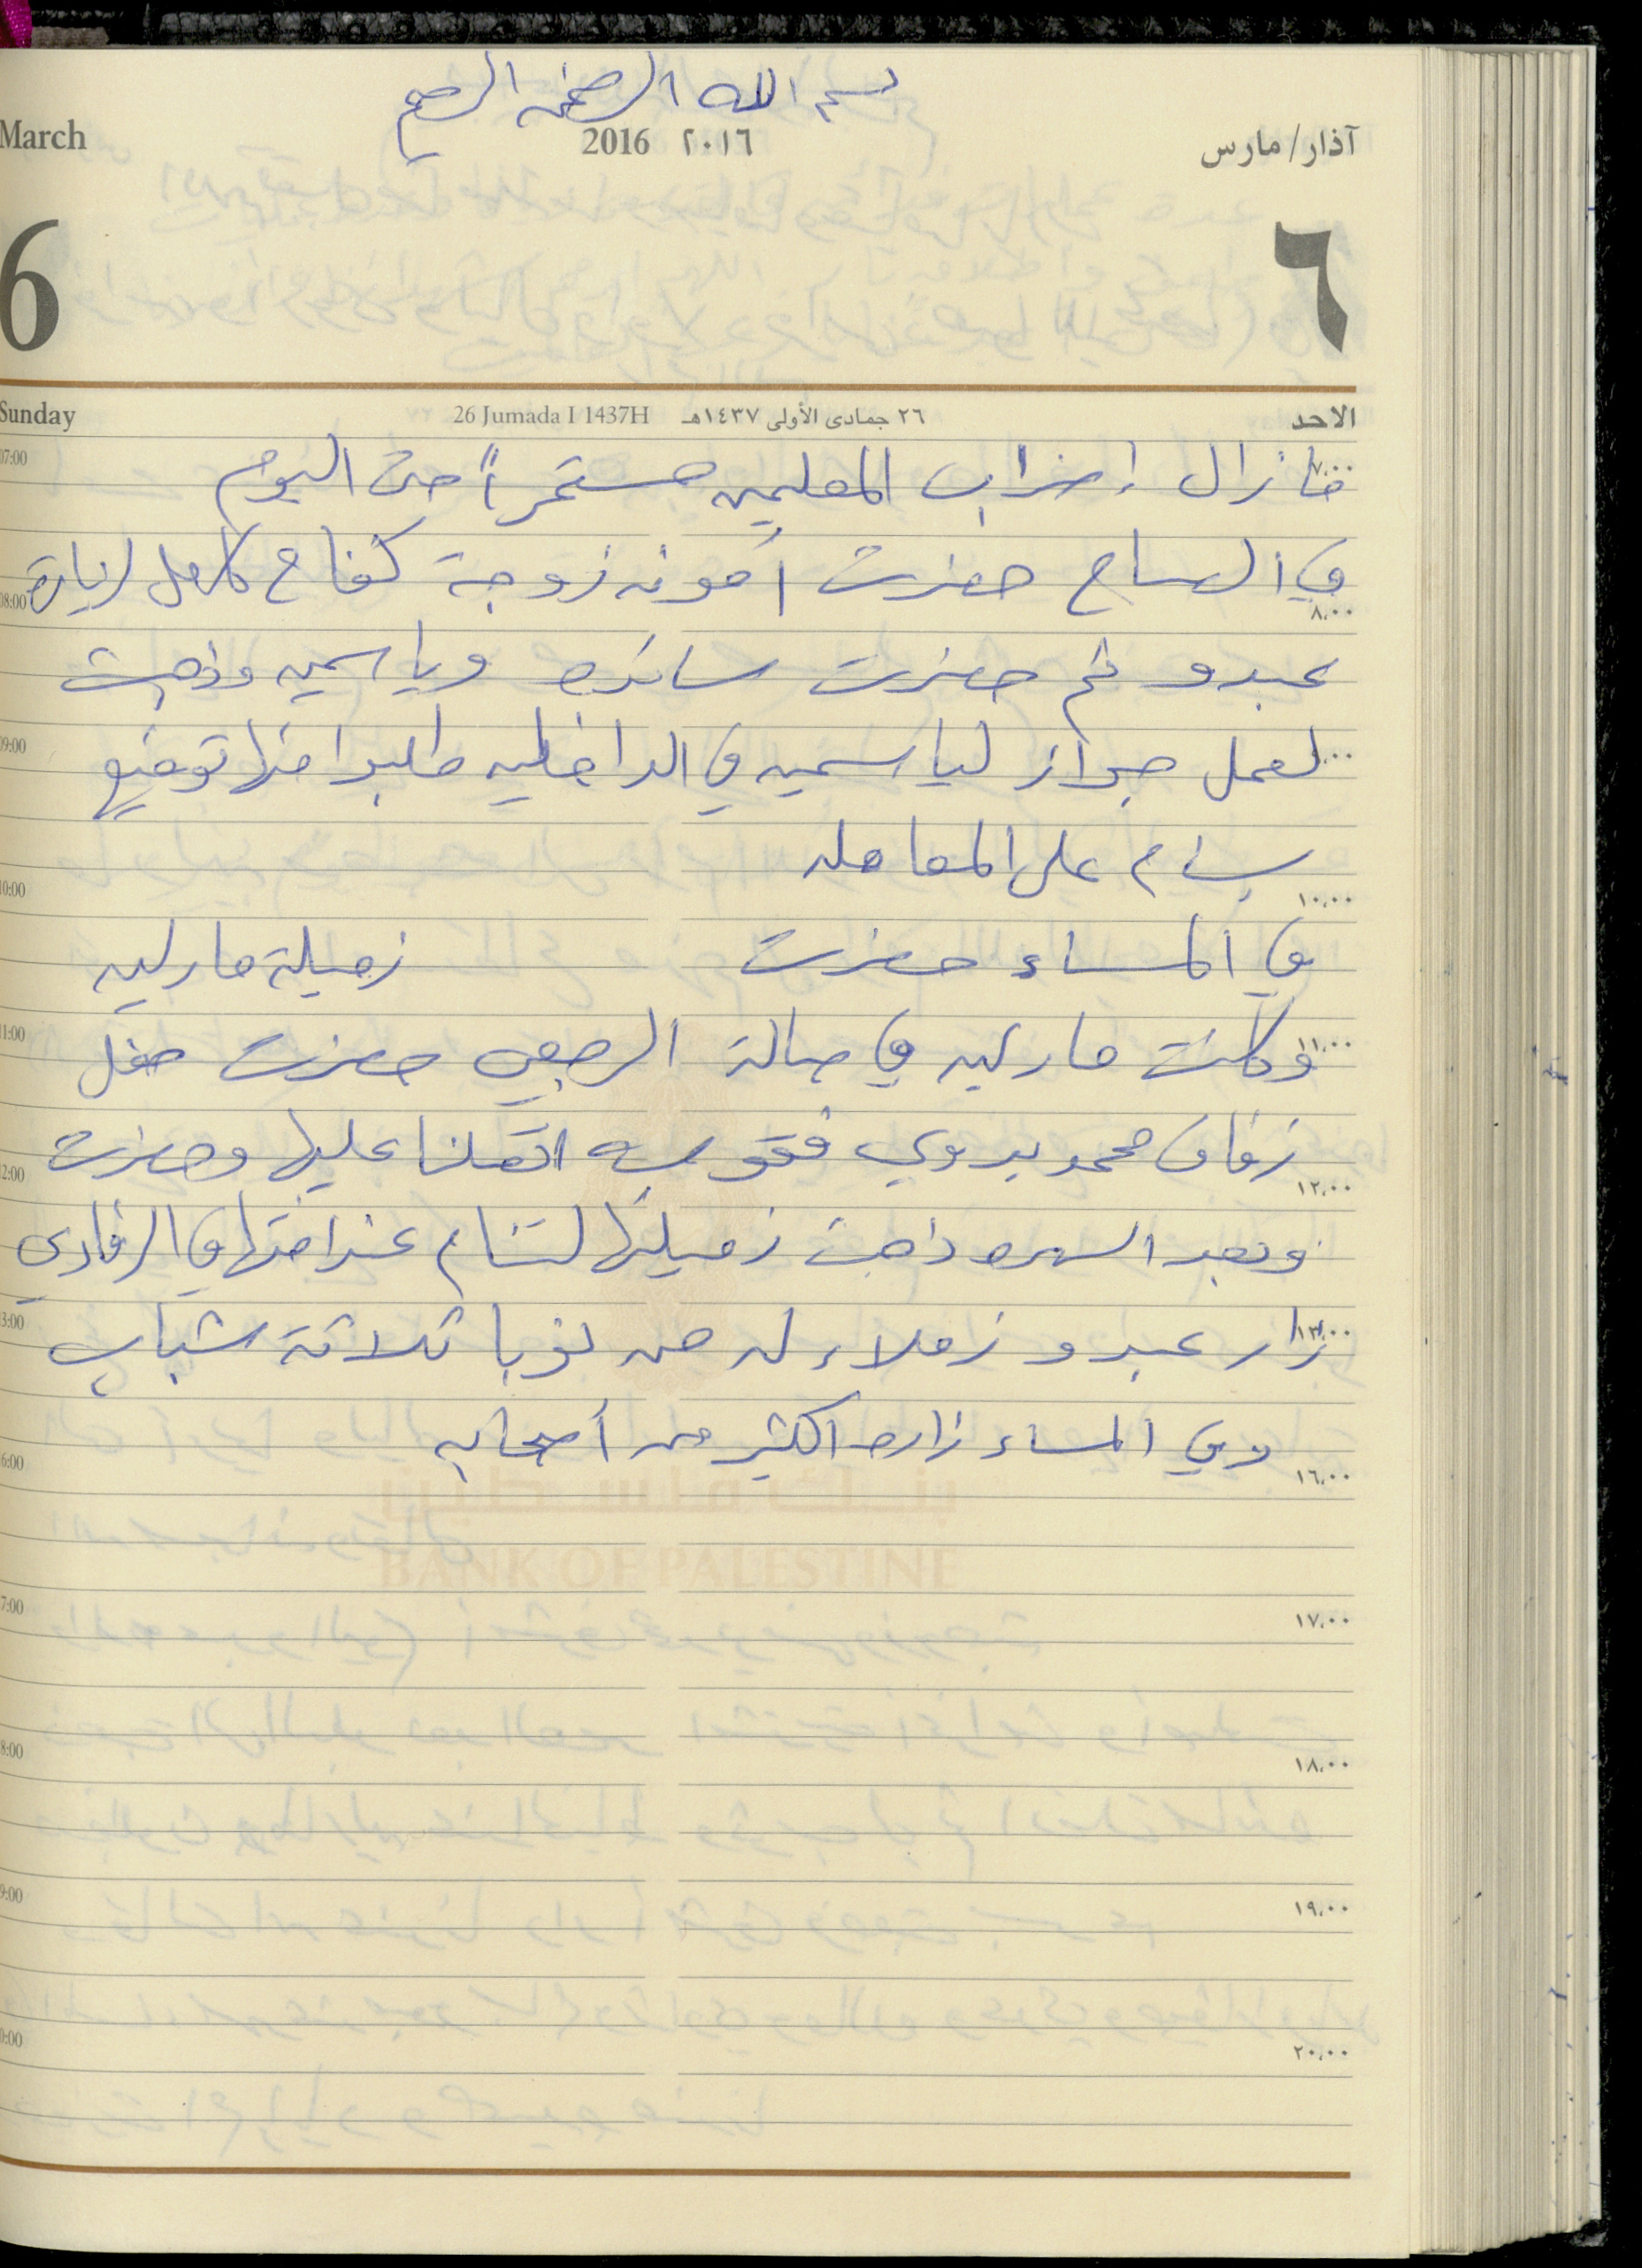 بسم الله الرحمن الرحيم
March 2016 ٢٠١٦ آذار/مارس
6 ٦
Sunday 26 Jumada I 1437H ٢٦ جمادى الأولى ١٤٣٧هـ الاحد
07:00 ما زال إضراب المعلمين مستمراً حتى اليوم ٧،٠٠
في الصباح حضرت آمونه زوجة كفاح كامل لزيارة
08:00 ٨،٠٠
عبدو ثم حضرت سائده وياسمين وذهبت
09:00 لعمل جواز لياسمين في الداخليه طلبوا منها توقيع
بسام على المعامله
10:00 ١٠،٠٠
في المساء حضرت زميلة مارلين
11:00 وكانت مارلين في صالة الرجبي حضرت حفل ١١،٠٠
زفاف محمد بدوي اتصلنا عليها وحضرت
12:00 ١٢،٠٠
وبعد السهره ذهبت زميلتها لتنام عند اختها في
13:00 زار عبدو زملاء له من ثلاثة شباب ١٣،٠٠
وفي المساء زاره اكثر من أصحابه
16:00 ١٦،٠٠
بنك فلسطين
BANK OF PALESTINE
17:00 ١٧،٠٠
18:00 ١٨،٠٠
19:00 ١٩،٠٠
20:00 ٢٠،٠٠